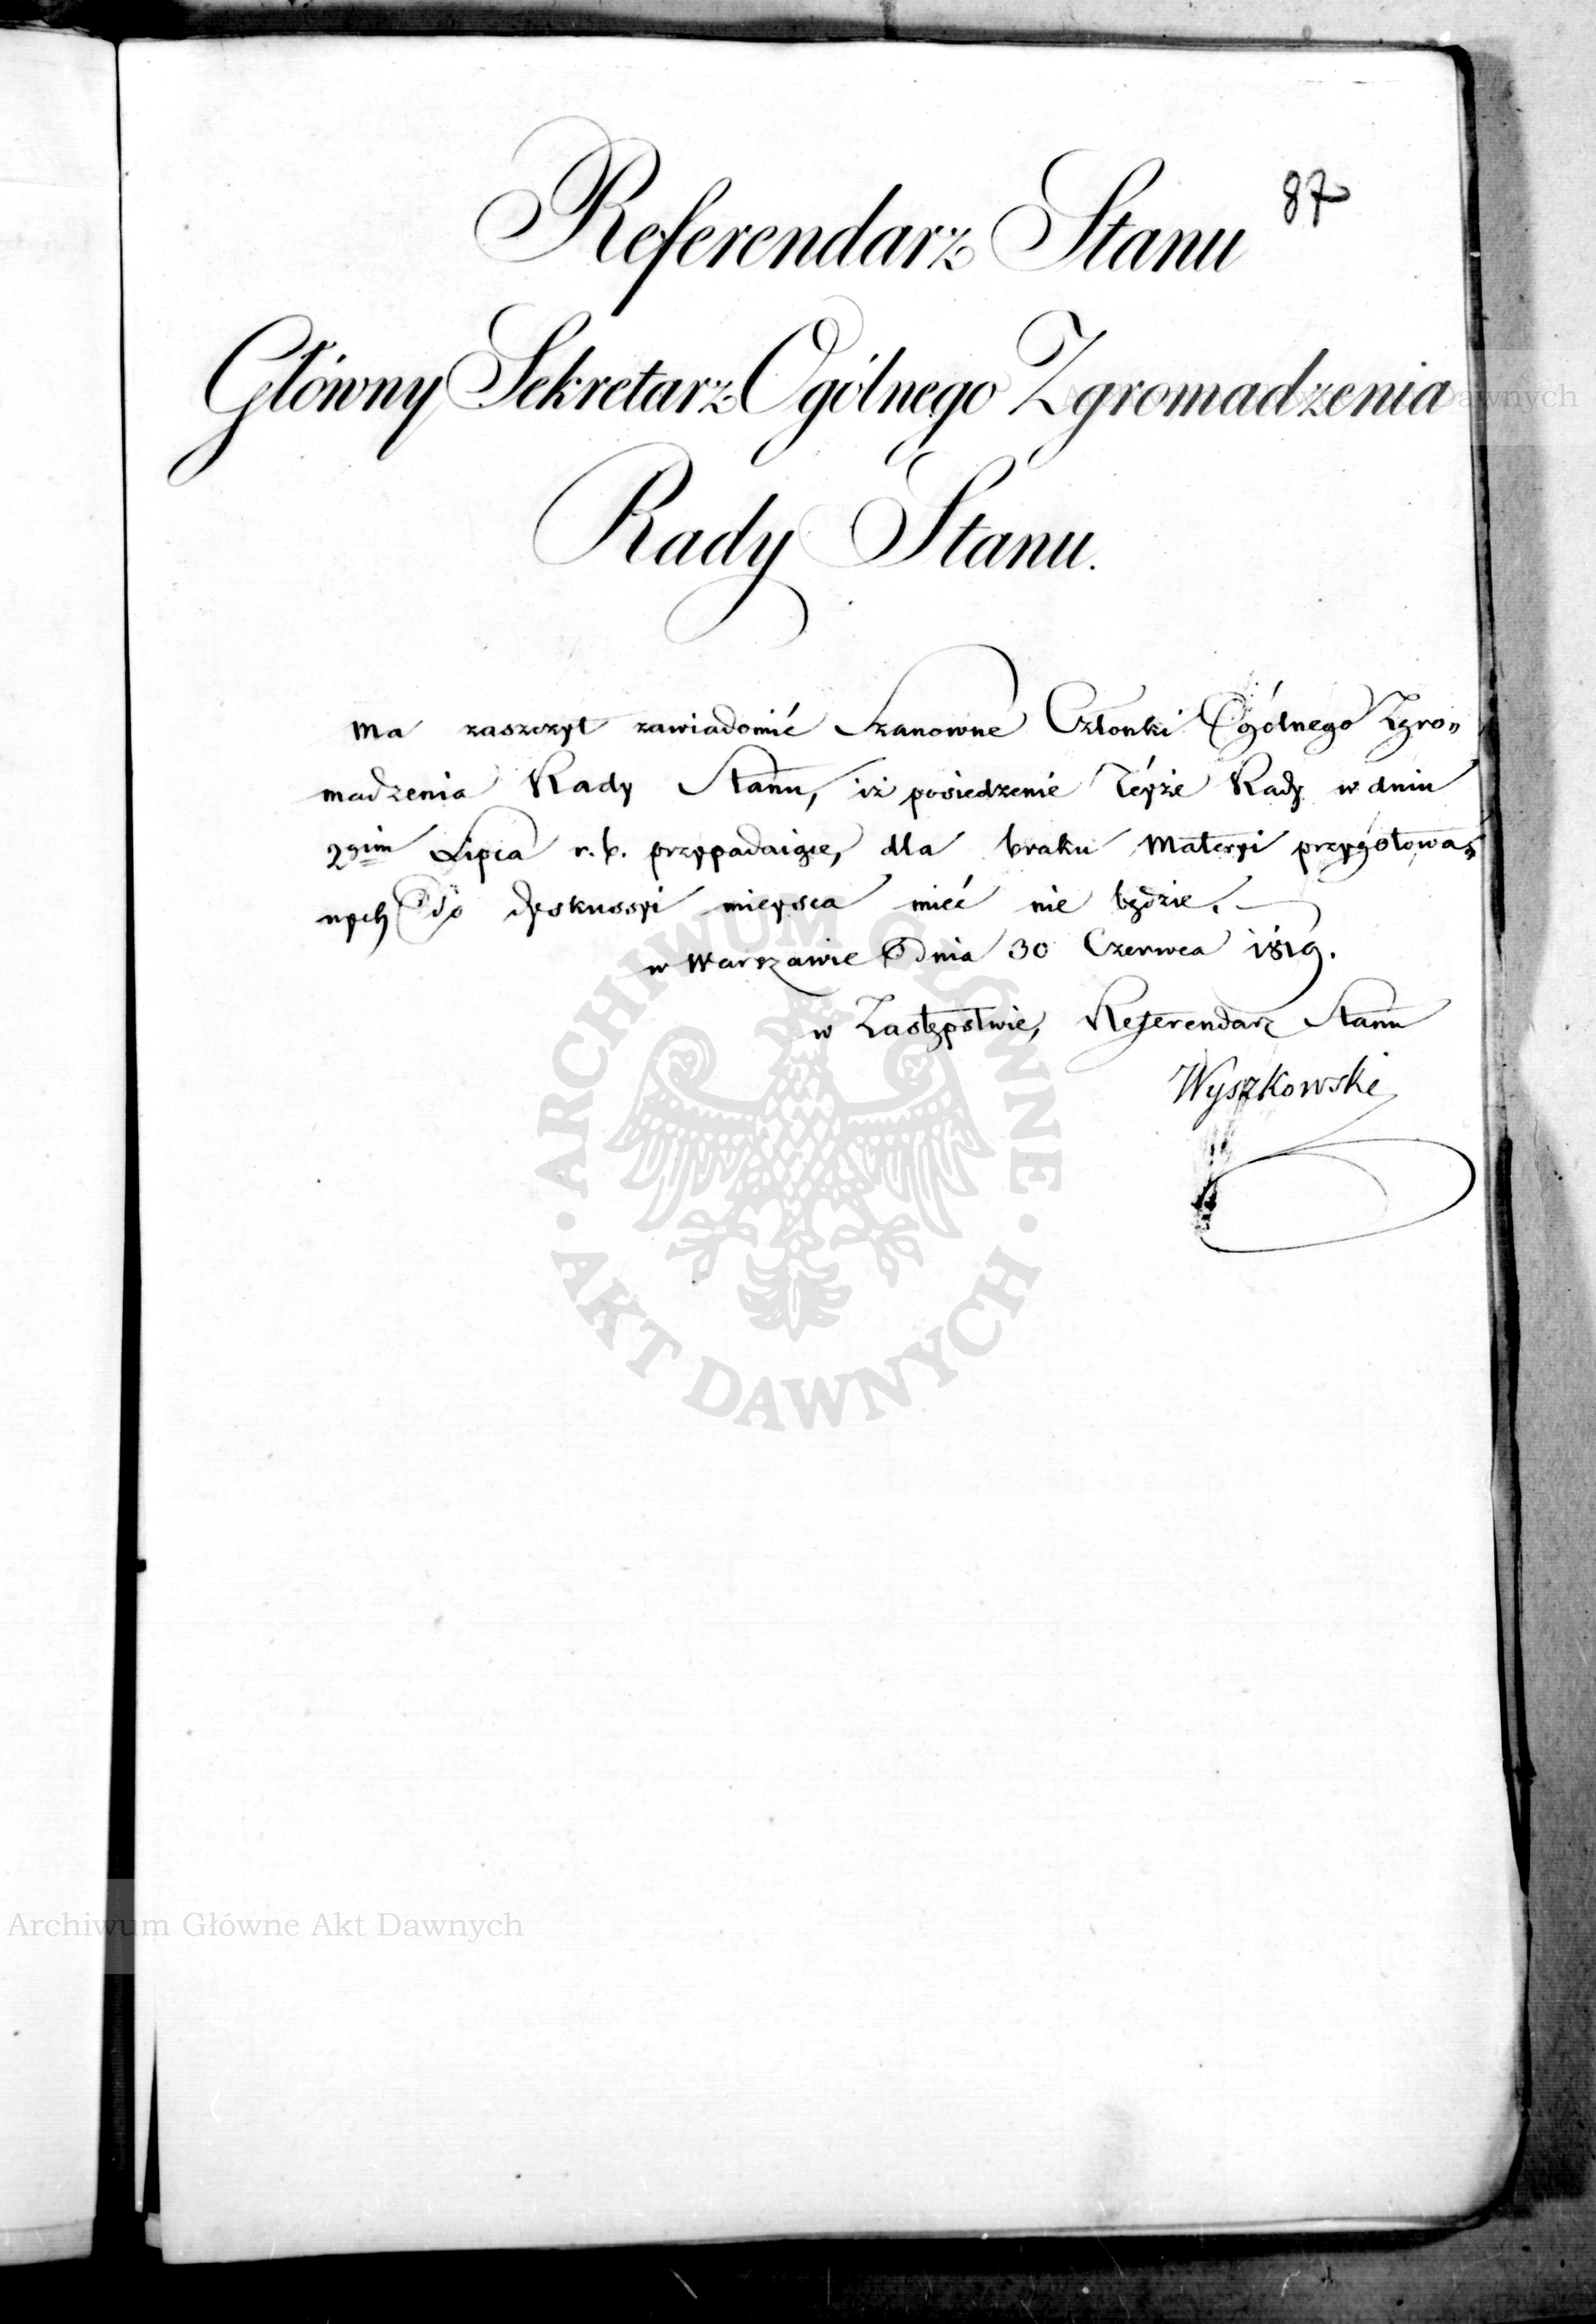 87
Referendarz Stanu
Główny Sekretarz Ogólnego Zgromadzenia
Rady Stanu.
Ma zaszczyt zawiadomić Szanowne Członki Ogólnego Zgro„
madzenia Rady Stanu, iż posiedzenie Téyże Rady w dniu
2gim Lipca r. b. przypadaiące, dla braku Materyi przygotowa„
nych do dyskussyi mieysca mieć nie będzie.
w Warszawie Dnia 30 Czerwca 1819.
w Zastępstwie, Referendarz Stanu
Wyszkowski
ARCHIWUM GŁÓWNE AKT DAWNYCH
Archiwum Główne Akt Dawnych